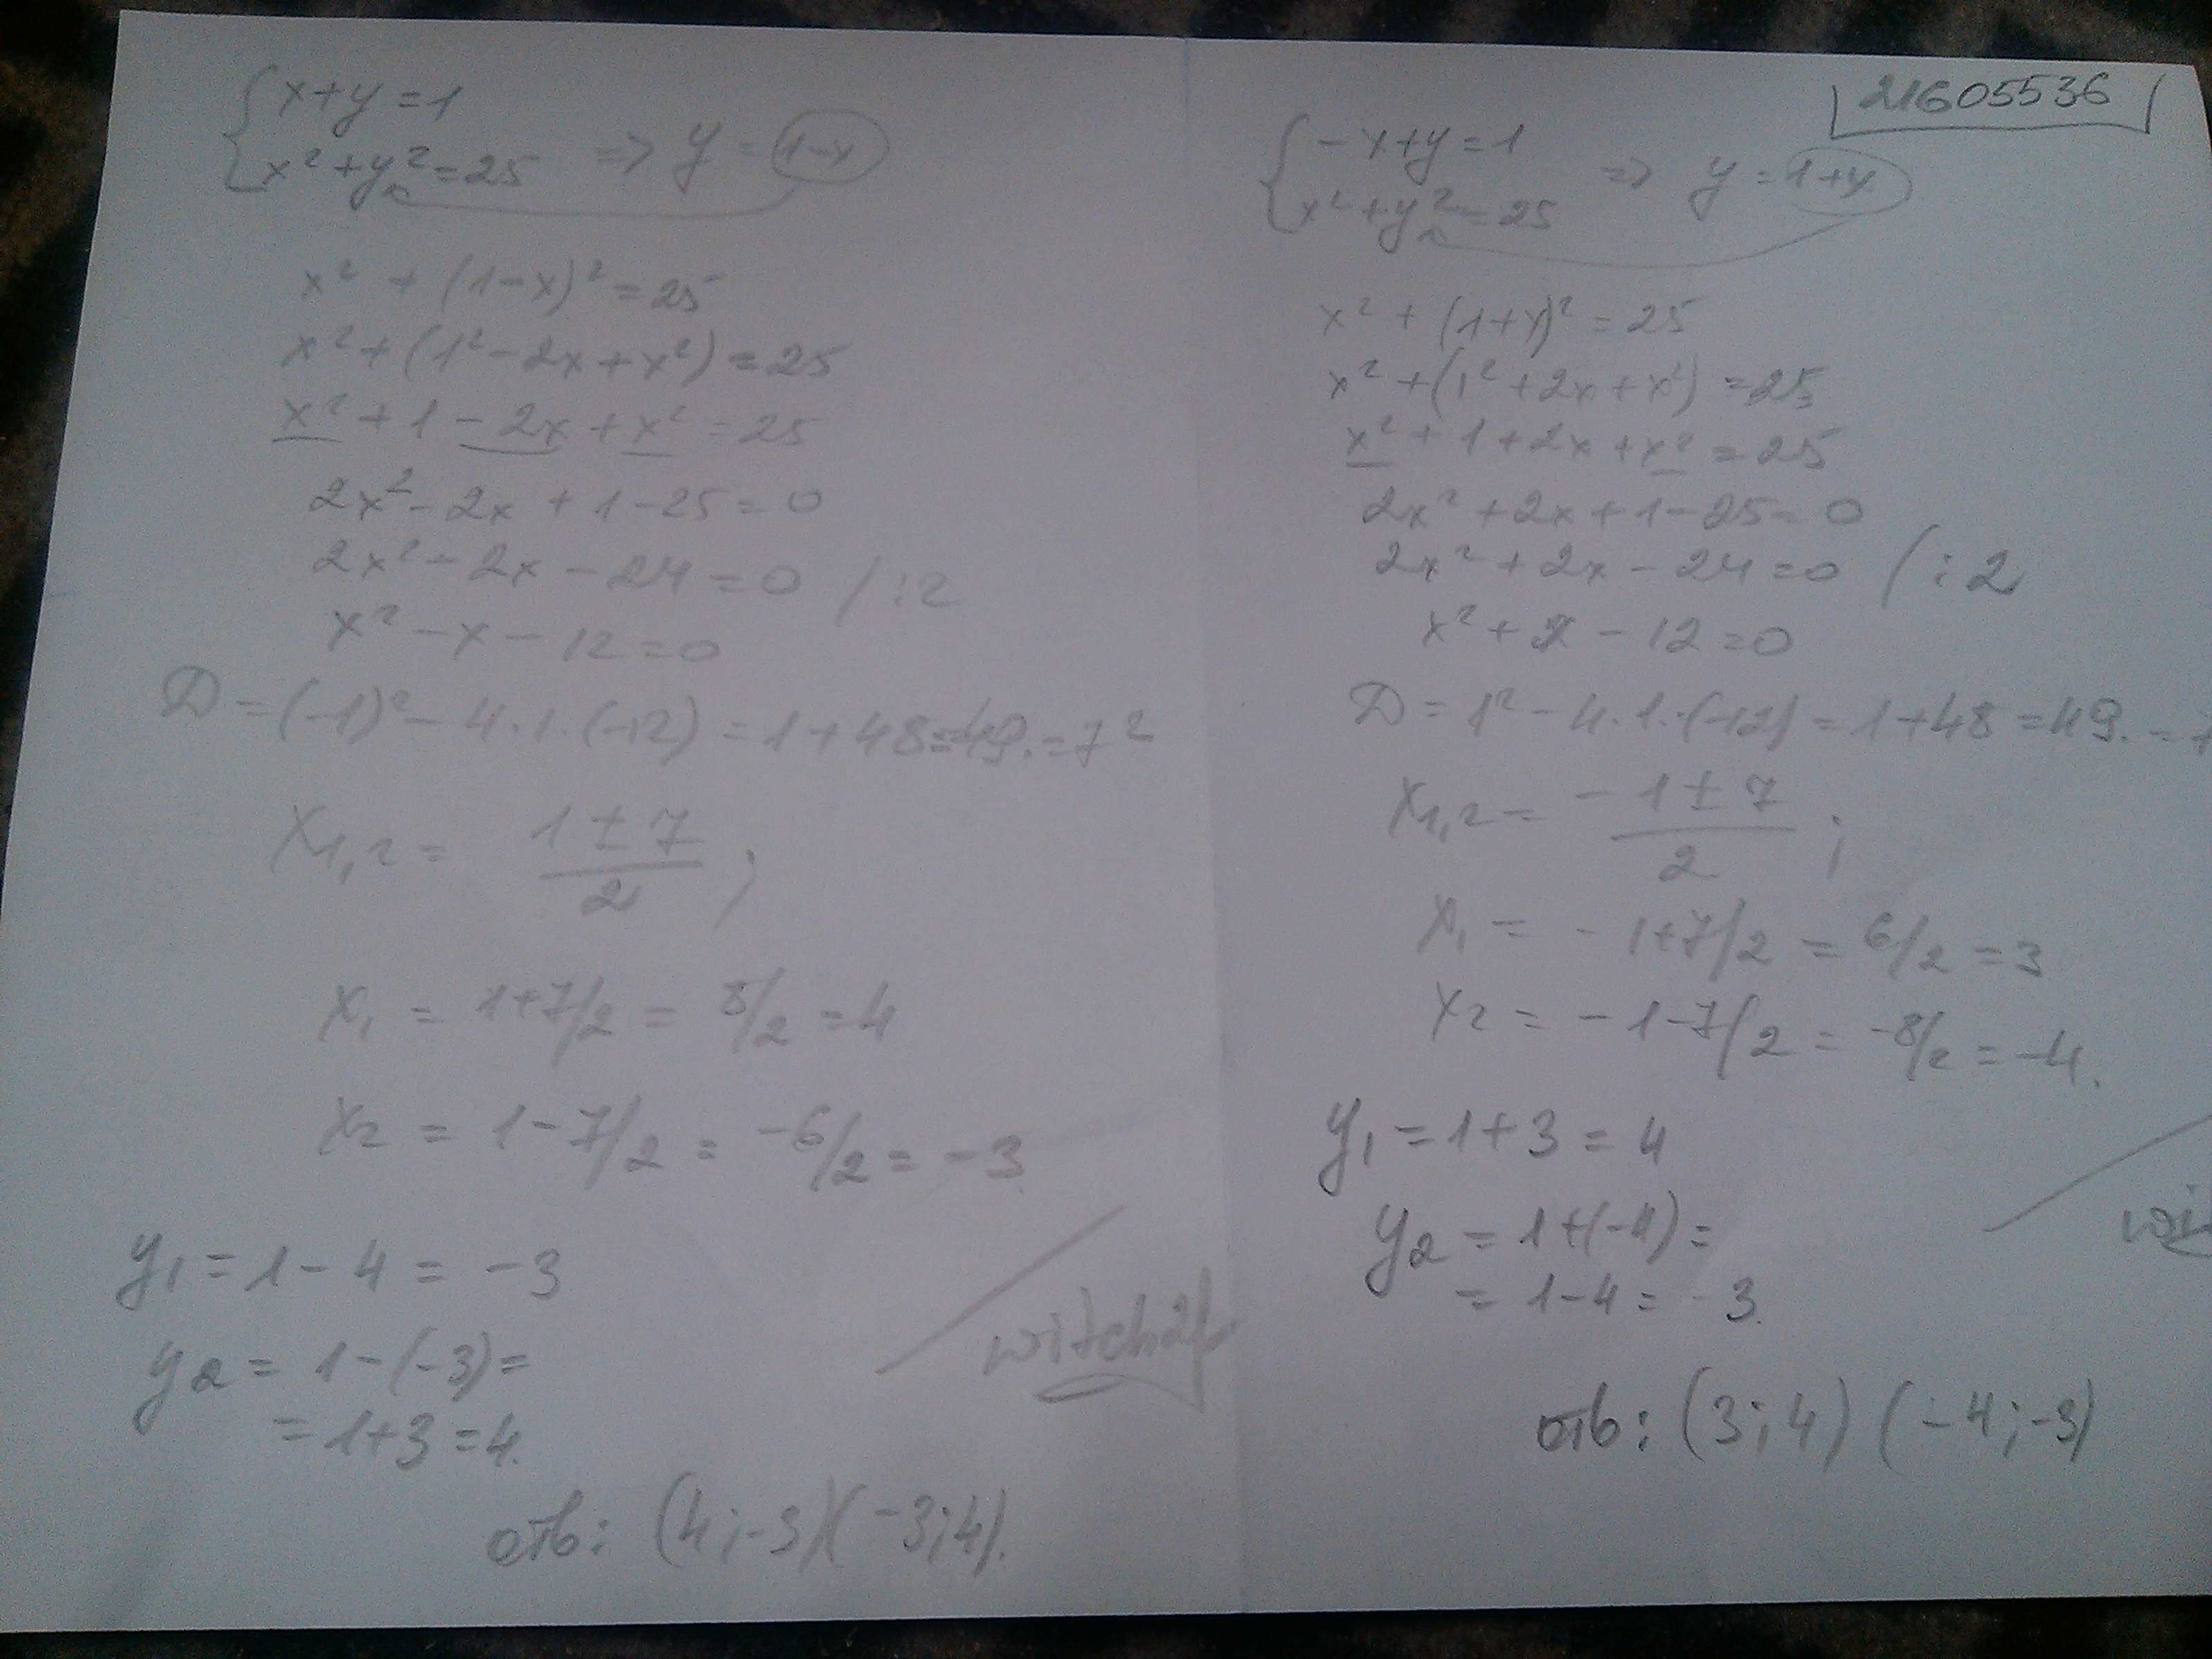 x+y=1
x²+y²=25 => y=1-x
x² + (1-x)² = 25
x² + (1² - 2x + x²) = 25
x² + 1 - 2x + x² = 25
2x² - 2x + 1 - 25 = 0
2x² - 2x - 24 = 0 /:2
x² - x - 12 = 0
D = (-1)² - 4·1·(-12) = 1 + 48 = 49. = 7²
x1,2 = (1 ± 7)/2 ;
x1 = 1+7/2 = 8/2 = 4
x2 = 1-7/2 = -6/2 = -3
y1 = 1 - 4 = -3
y2 = 1 - (-3) =
= 1+3 = 4.
отв: (4;-3)(-3;4).
21605536
-x+y=1
x²+y²=25 => y=1+x
x² + (1+x)² = 25
x² + (1² + 2x + x²) = 25
x² + 1 + 2x + x² = 25
2x² + 2x + 1 - 25 = 0
2x² + 2x - 24 = 0 /:2
x² + x - 12 = 0
D = 1² - 4·1·(-12) = 1 + 48 = 49. = 7
x1,2 = (-1 ± 7)/2 ;
x1 = -1+7/2 = 6/2 = 3
x2 = -1-7/2 = -8/2 = -4.
y1 = 1+3 = 4
y2 = 1+(-4) =
= 1-4 = -3.
отв: (3;4) (-4;-3)